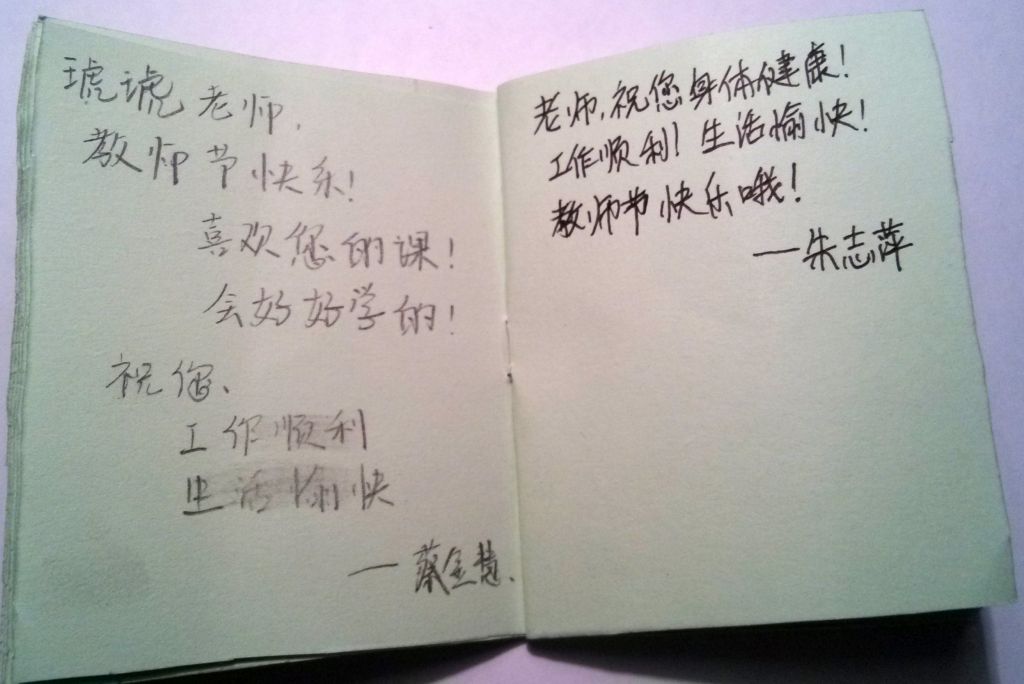 琥琥老师，
教师节快乐！
喜欢您的课！
会好好学的！
祝您、
工作顺利
生活愉快
—蔡金慧.
老师，祝您身体健康！
工作顺利！生活愉快！
教师节快乐哦！
—朱志萍